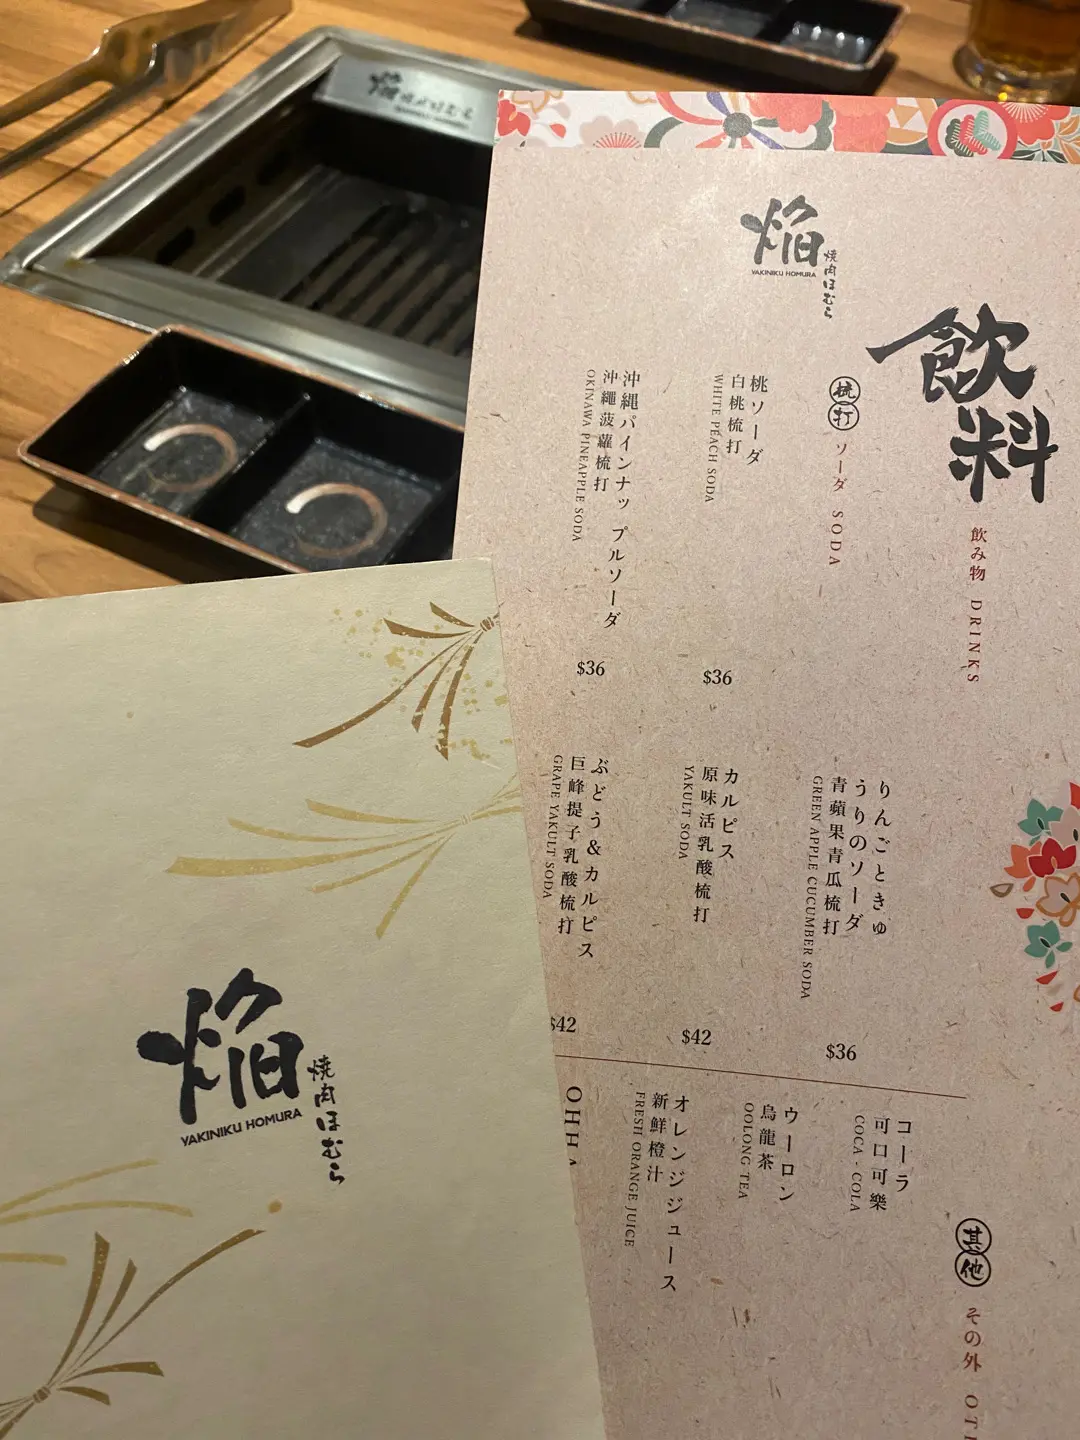 焔
焼肉ほむら
YAKINIKU HOMURA
焔
YAKINIKU HOMURA
焼肉ほむら
飲料
飲み物 DRINKS
梳打
ソーダ SODA
桃ソーダ
白桃梳打
WHITE PEACH SODA
$36
沖縄パインナップルソーダ
沖繩菠蘿梳打
OKINAWA PINEAPPLE SODA
$36
りんごときゅ
うりのソーダ
青蘋果青瓜梳打
GREEN APPLE CUCUMBER SODA
$36
カルピス
原味活乳酸梳打
YAKULT SODA
$42
ぶどう&カルピス
巨峰提子乳酸梳打
GRAPE YAKULT SODA
$42
其他
その外
コーラ
可口可樂
COCA-COLA
ウーロン
烏龍茶
OOLONG TEA
オレンジジュース
新鮮橙汁
FRESH ORANGE JUICE
焔
YAKINIKU HOMURA
焼肉ほむら